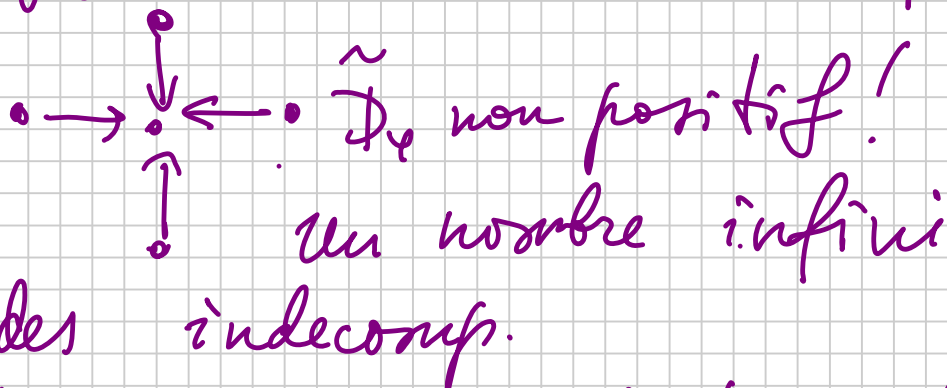 D̃₄ non positif!
Un nombre infini
des indecomp.